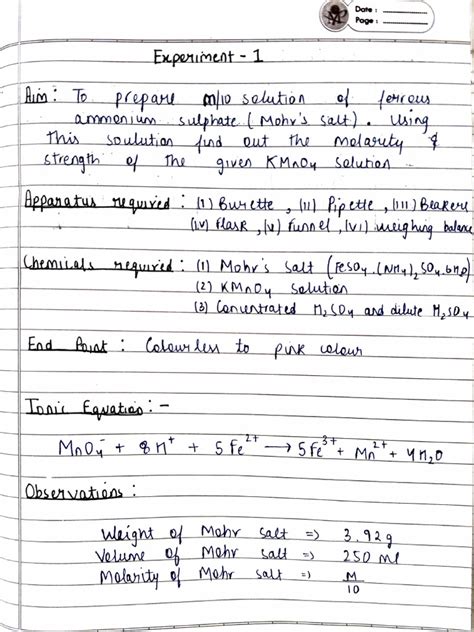 Date :
Page :
Experiment - 1
Aim : To prepare M/10 solution of ferrous
ammonium sulphate (Mohr's salt). Using
this soulution find out the molarity &
strength of the given KMnO4 solution.
Apparatus required : (i) Burette, (ii) Pipette, (iii) Beakers
(iv) Flask, (v) Funnel, (vi) weighing balance
Chemicals required : (1) Mohr's salt (FeSO4.(NH4)2SO4.6H2O)
(2) KMnO4 solution
(3) Concentrated H2SO4 and dilute H2SO4
End Point : Colourless to pink colour
Ionic Equation : -
MnO4⁻ + 8H⁺ + 5Fe²⁺ → 5Fe³⁺ + Mn²⁺ + 4H2O
Observations :
Weight of Mohr salt => 3.92g
Volume of Mohr salt => 250 ml
Molarity of Mohr salt => M/10